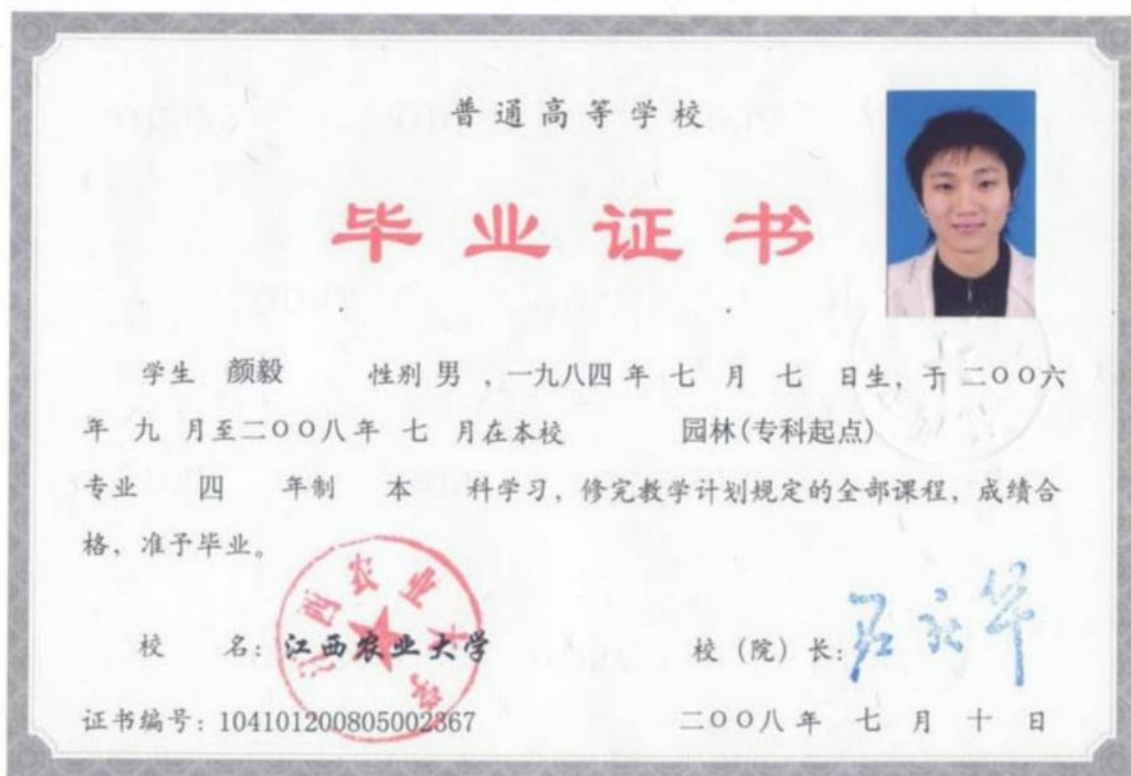 普通高等学校
毕业证书
学生 颜毅 性别 男 ,一九八四 年 七 月 七 日生, 于 二〇〇六
年 九 月至二〇〇八年 七 月在本校 园林(专科起点)
专业 四 年制 本 科学习, 修完教学计划规定的全部课程, 成绩合
格, 准予毕业。
江西农业大学
校 名: 江西农业大学 校 (院) 长:
证书编号: 104101200805002367 二〇〇八 年 七 月 十 日